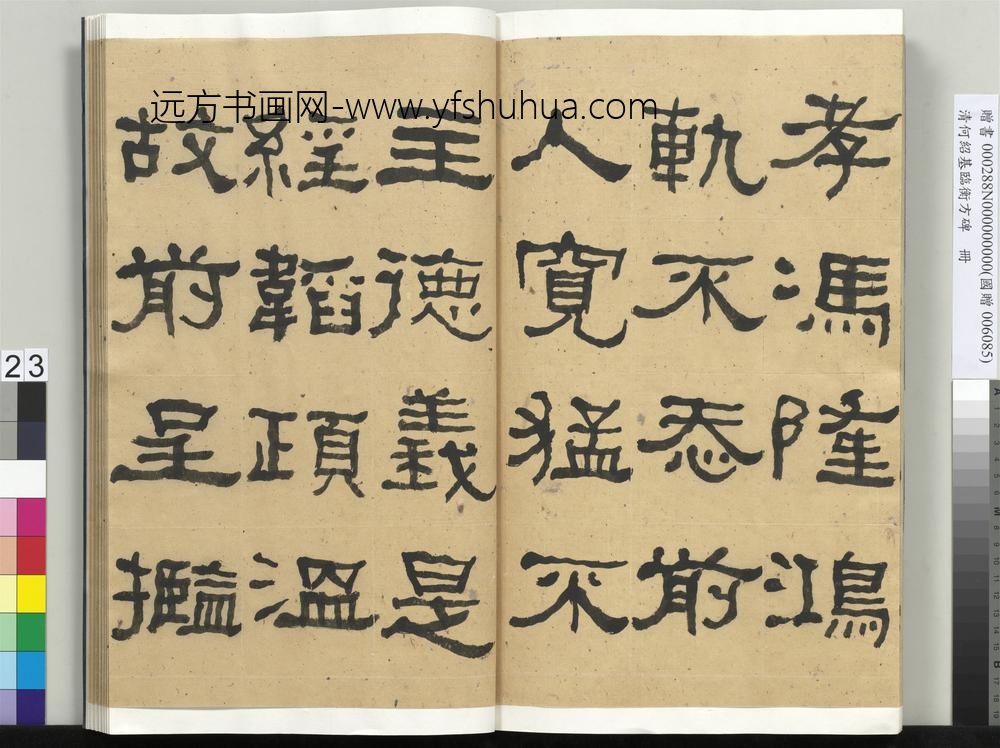 远方书画网-www.yfshuhua.com
孝馮隆鴻
軌不忝前
人寬猛不
主德義是
經韜頙溫
故前呈㩜
贈書 000288N000000000(國贈 006085)
清何紹基臨衡方碑 冊
23